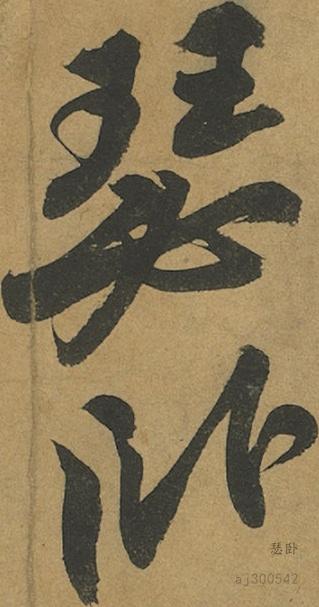 瑟卧
瑟卧
aj300542